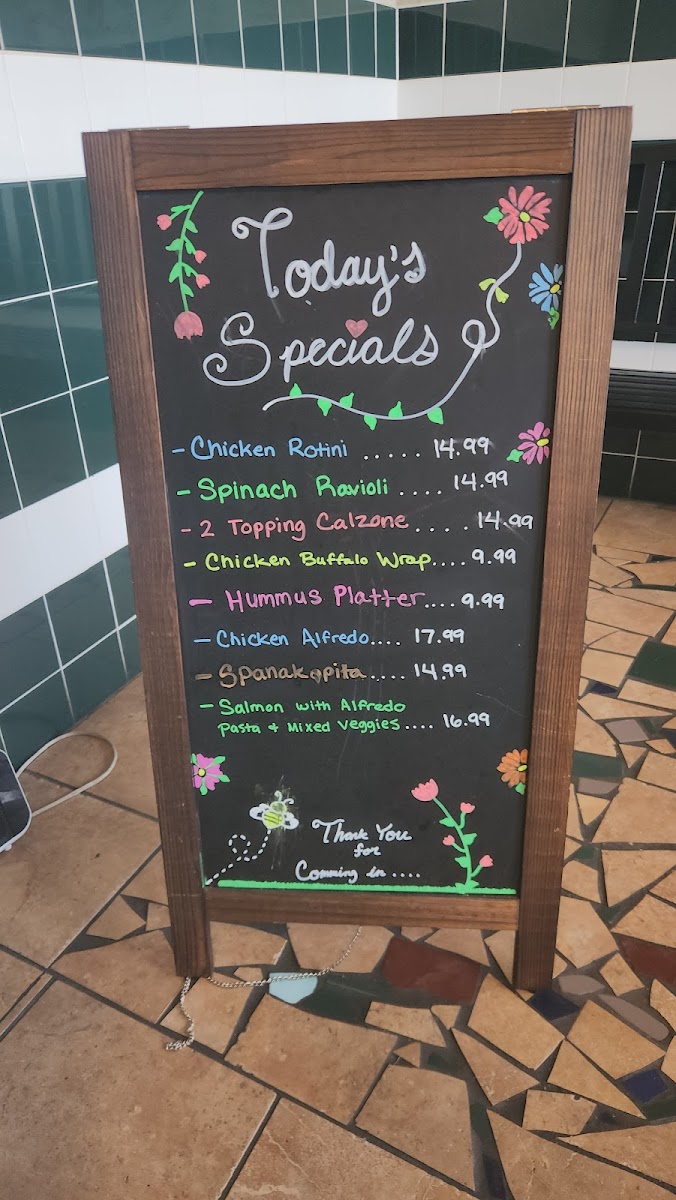 Today's
Specials
- Chicken Rotini ..... 14.99
- Spinach Ravioli .... 14.99
- 2 Topping Calzone.... 14.99
- Chicken Buffalo Wrap.... 9.99
- Hummus Platter.... 9.99
- Chicken Alfredo.... 17.99
- Spanakopita.... 14.99
- Salmon with Alfredo
Pasta + Mixed Veggies.... 16.99
Thank You
for
Comming in ....